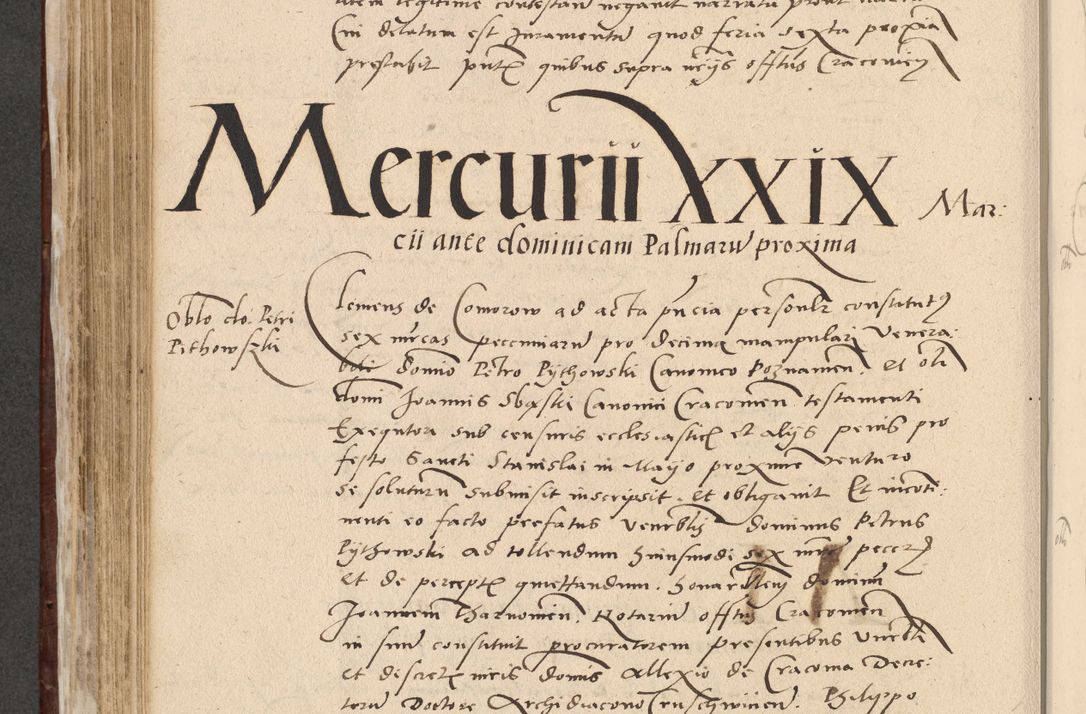 Cui delatum est Juramentu quod feria sexta proxia
prestabit pntz quibus supra nrijs offtus Cracovien
Mercurii XXIX Mar:
cii ante dominicam Palmaru proxima
Oblo do. Petri
Pithowszki
Clemens de Comorow ad acta pncia personlr constitutus
sex mrcas pecuniaru pro decima manipulari Venera:
bili Domno Petro Pythowski Canonico Poznanien. et oli
domi Joannis Sbąski Canonici Cracovien testamenti
Exequtori sub censuris ecclesiasticz et alijs penis pro
festo Sancti Stanislai in Mayo proxime venturo
se soluturu submisit inscripsit et obligavit Et incote:
nenti eo facto prefatus venerblis Dominus Petrus
Pythowski ad tollendum huiusmodi sex mrcas pecez
et de perceptz quiettandum. honarablem dominu
Joannem Tharnowien. Notariu offtus Cracovien
in suu constituit procuratorem presentibus Venerbli
et discretz viris domis Allexio de Cracovia Decre:
toru Doctore Archidiacono Cruschwicien. Philippo